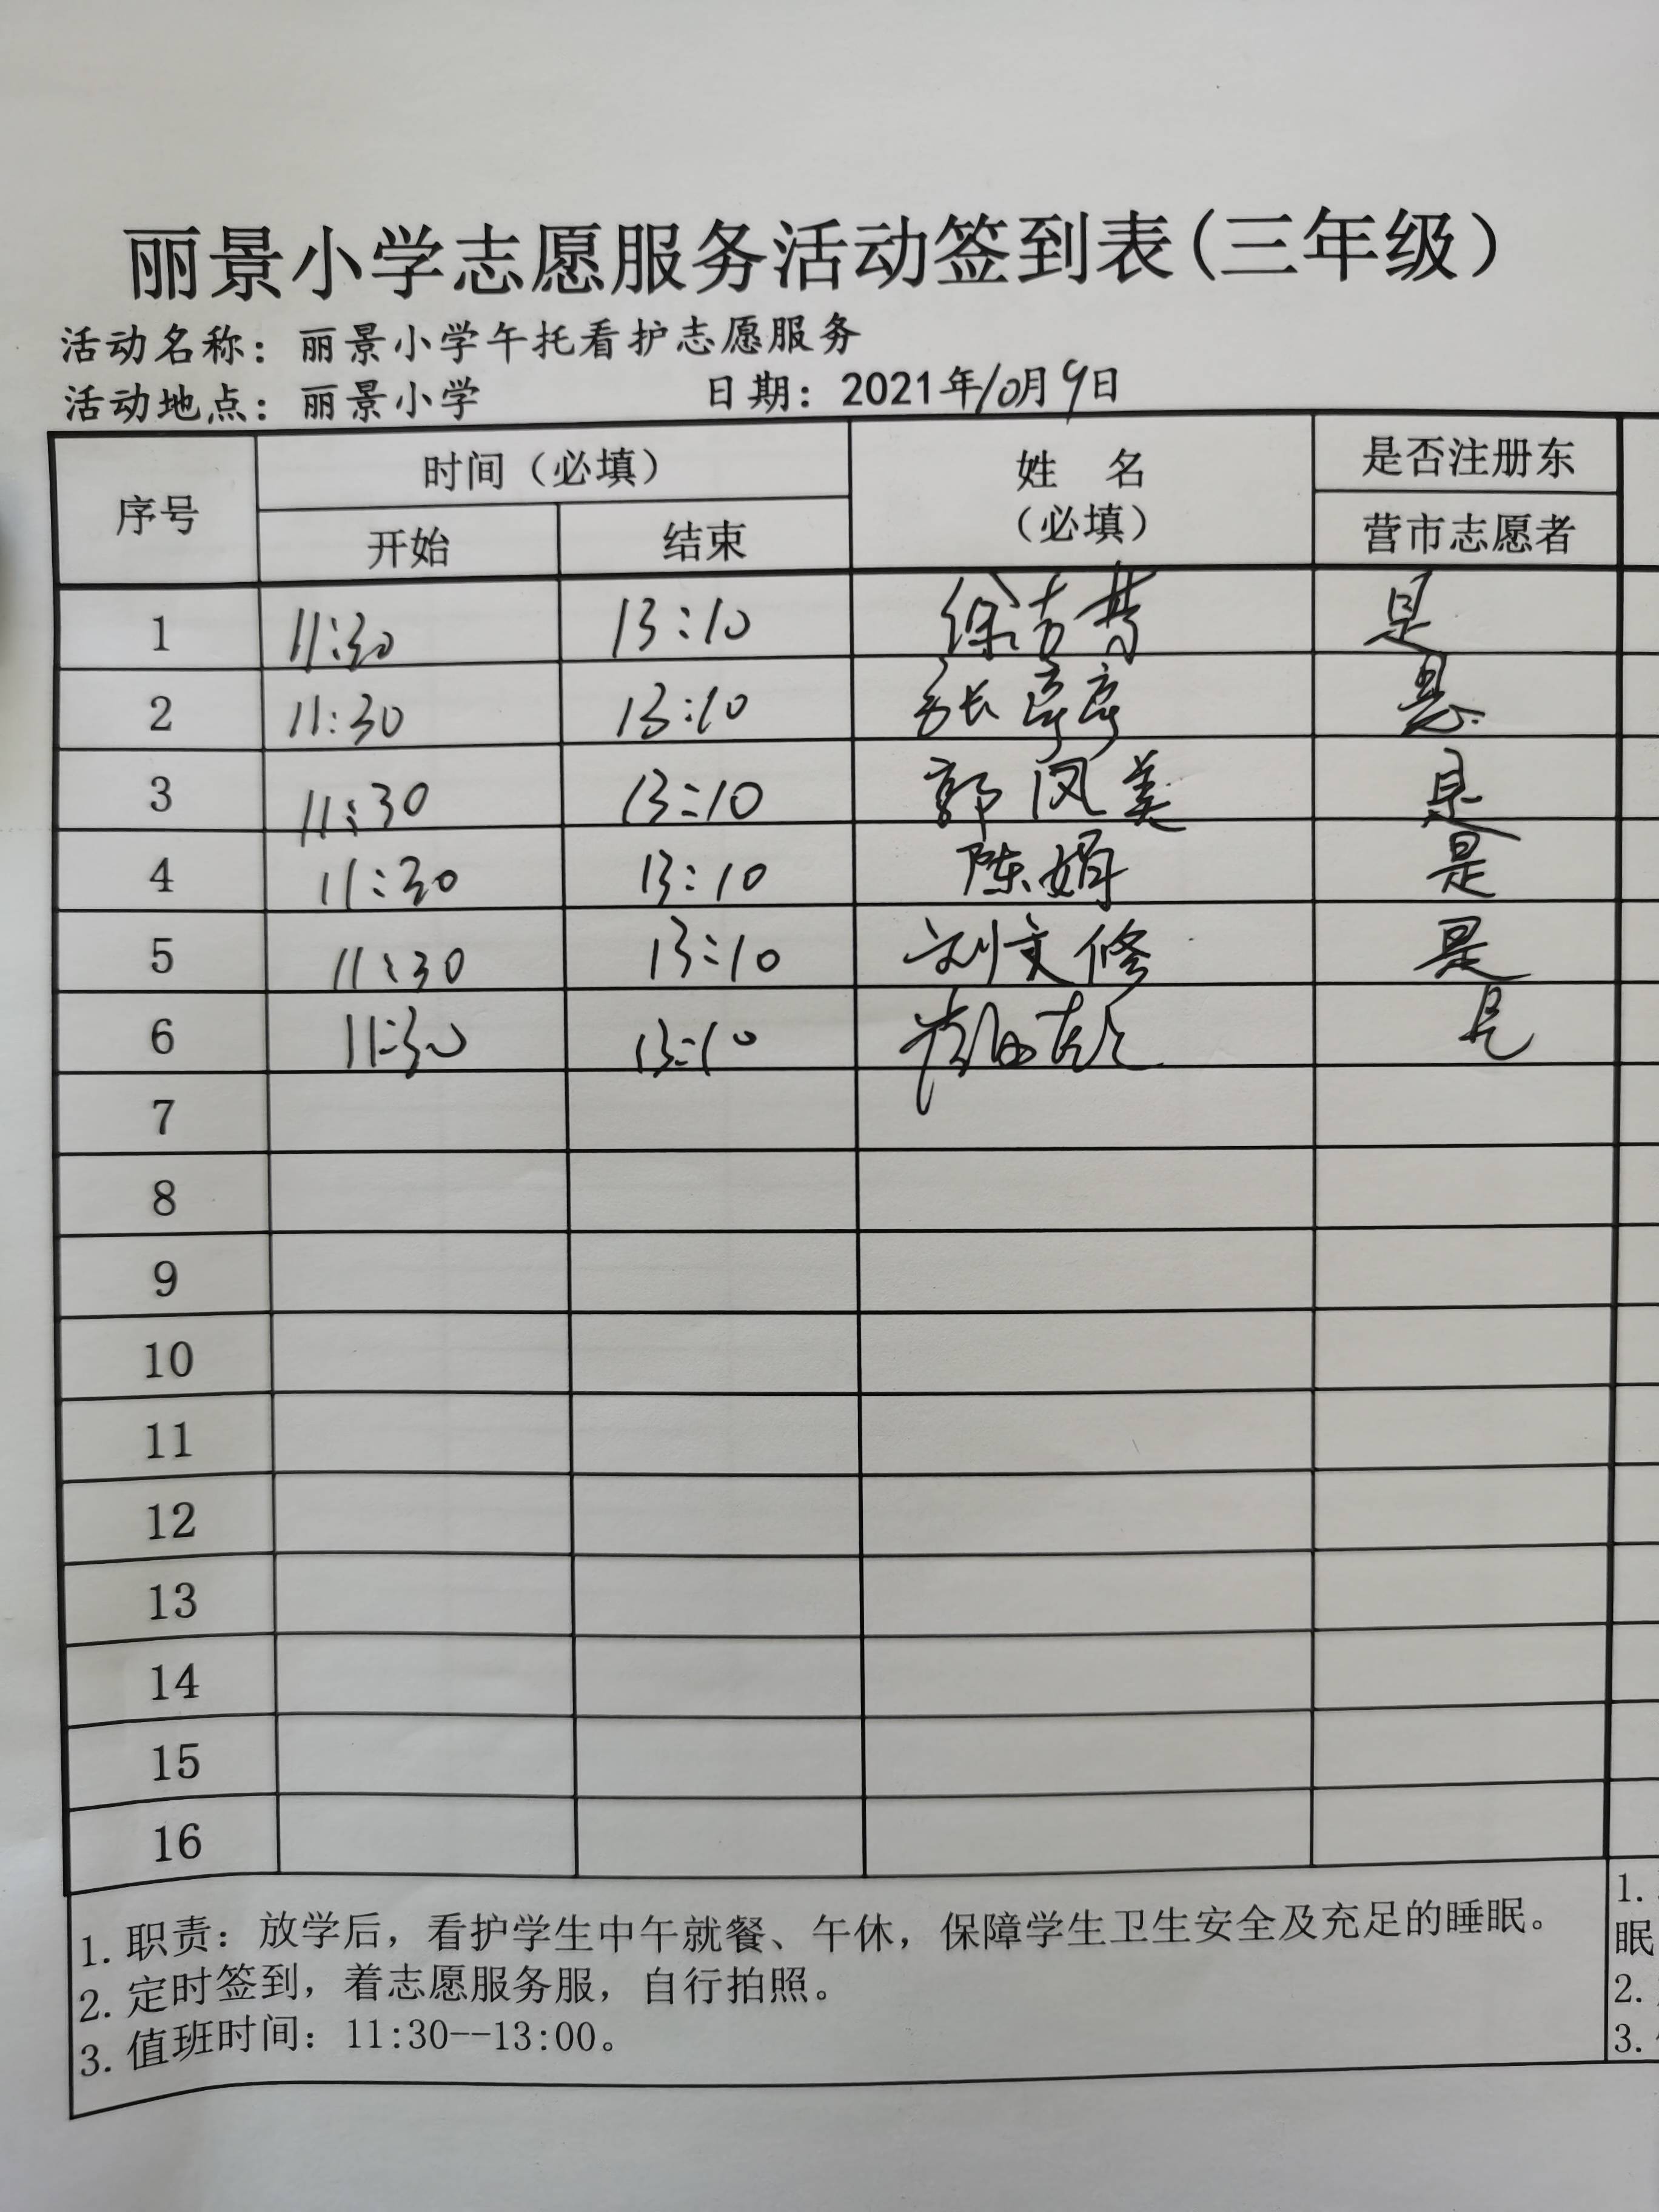 丽景小学志愿服务活动签到表(三年级)
活动名称：丽景小学午托看护志愿服务
活动地点：丽景小学 日期：2021年10月9日
序号 时间（必填） 姓 名（必填） 是否注册东营市志愿者
开始 结束
1 11:30 13:10 徐 是
2 11:30 13:10 张彦彦 是
3 11:30 13:10 郭凤美 是
4 11:30 13:10 陈娟 是
5 11:30 13:10 刘文修 是
6 11:30 13:10 是
7
8
9
10
11
12
13
14
15
16
1. 职责：放学后，看护学生中午就餐、午休，保障学生卫生安全及充足的睡眠。
2. 定时签到，着志愿服务服，自行拍照。
3. 值班时间：11:30--13:00。
1.
眠
2.
3.